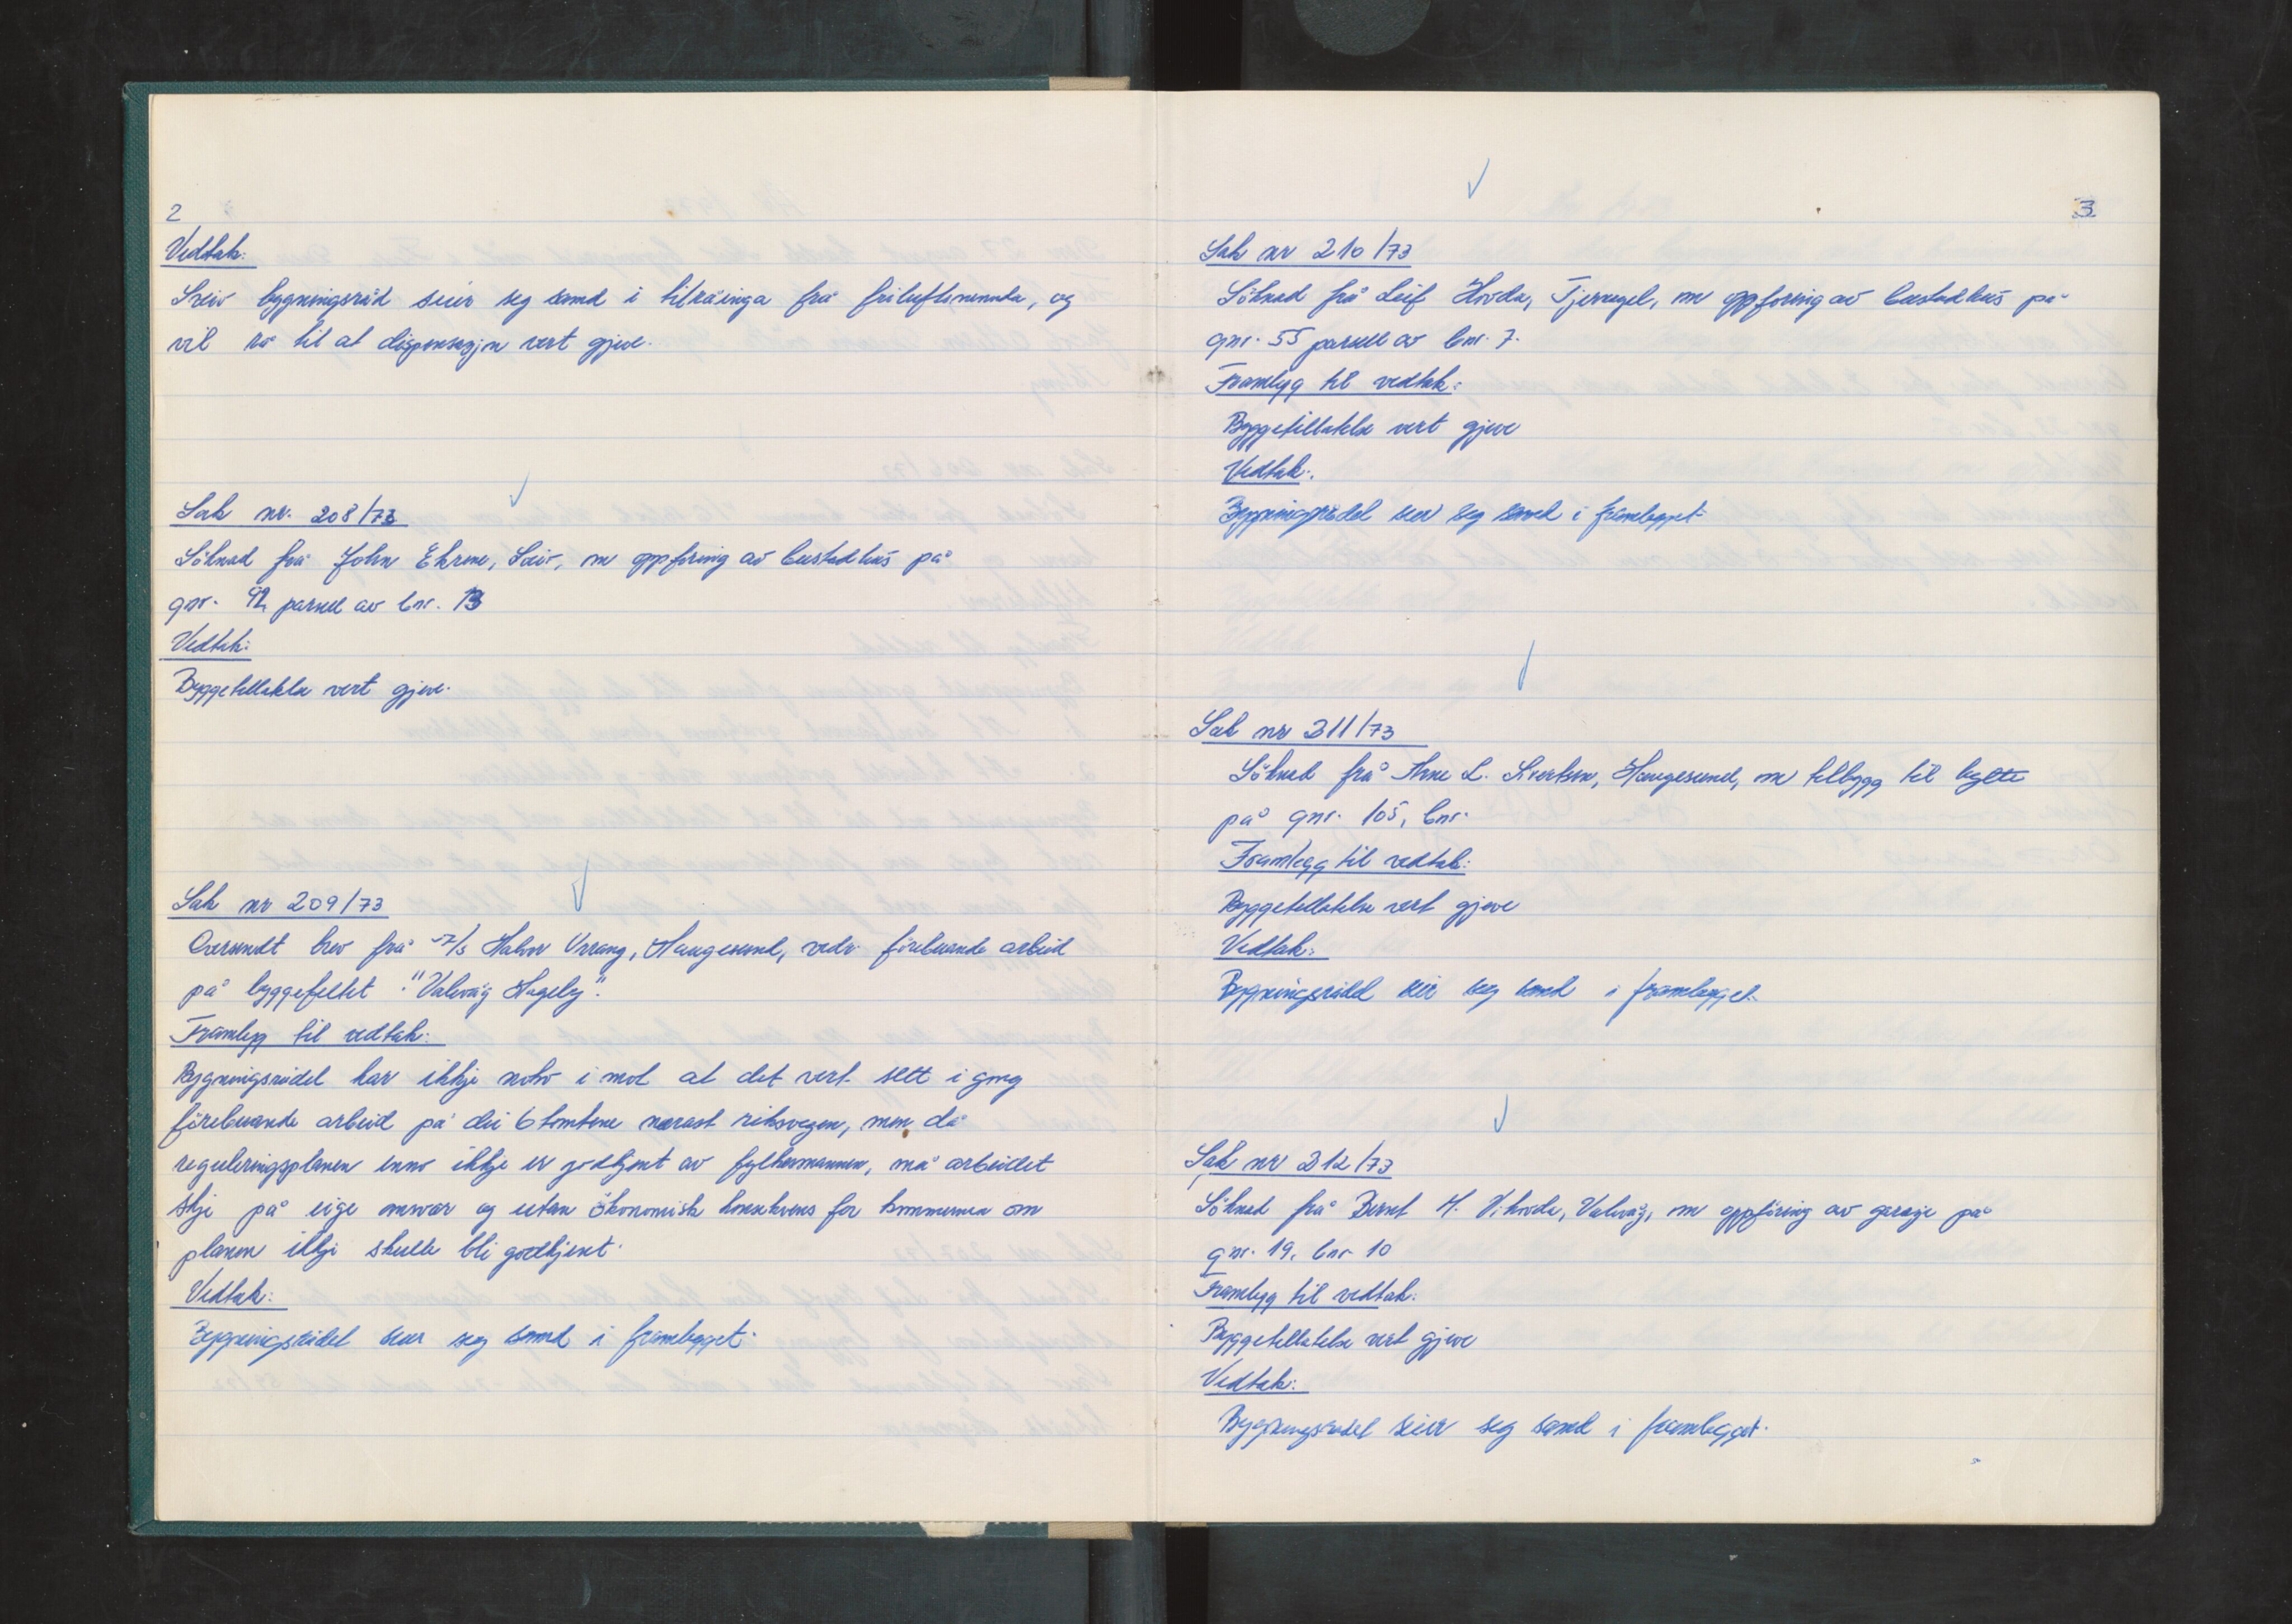 2
Vedtak:
Sveio bygningsråd seier seg samd i tilråinga frå friluftsnemnda, og
vil rå til at dispensasjon vert gjeve.
Sak nr. 208/73
Söknad frå John Ekrene, Sveio, om oppföring av bustadhus på
gnr. 92 parsell av bnr. 13
Vedtak:
Byggetillatelse vert gjeve.
Sak nr 209/73
Oversendt brev frå A/s Halvor Vrrang, Haugesund, vedr. förebuande arbeid
på byggefeltet "Valevåg Hageby".
Framlegg til vedtak:
Bygningsrådet har ikkje noko i mot at det vert sett i gang
förebuande arbeid på dei 6 tomtene nærast riksvegen, men då
reguleringsplanen enno ikkje er godkjent av fylkesmannen, må arbeidet
skje på eige ansvar og utan ökonomisk konsekvens for kommunen om
planen ikkje skulle bli godkjent.
Vedtak:
Bygningsrådet seier seg samd i framlegget.
3
Sak nr 210/73
Söknad frå Leif Hovda, Tjernagel, om oppföring av bustadhus på
gnr. 55 parsell av bnr. 7.
Framlegg til vedtak:
Byggetillatelse vert gjeve
Vedtak:
Bygningsrådet seier seg samd i framlegget
Sak nr 211/73
Söknad frå Arne L. Sivertsen, Haugesund, om tilbygg til hytte
på gnr. 105, bnr.
Framlegg til vedtak:
Byggetillatelse vert gjeve
Vedtak:
Bygningsrådet seier seg samd i framlegget.
Sak nr 212/73
Söknad frå Bernt H. Vihovda, Valevåg, om oppföring av garasje på
gnr. 19, bnr. 10
Framlegg til vedtak:
Byggetillatelse vert gjeve
Vedtak:
Bygningsrådet seier seg samd i framlegget.